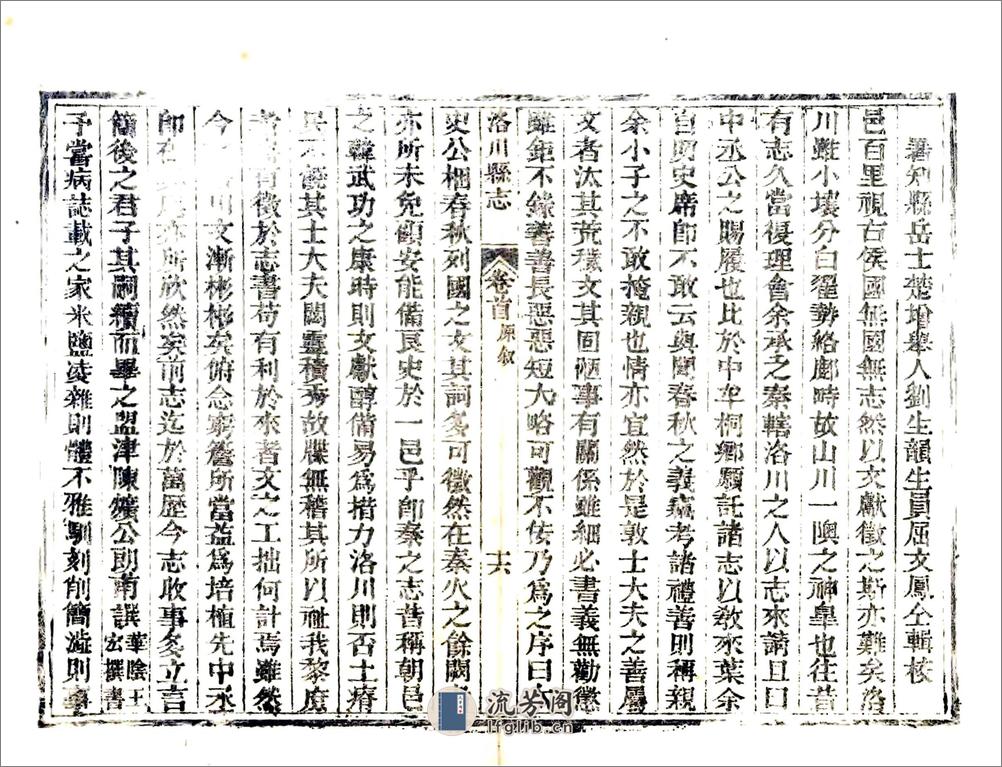 署知縣岳士楚增舉人劉生韻生員屈文鳳仝輯校
邑百里視古侯國無國無志然以文獻徵之斯亦難矣洛
川雖小壤分白翟勢絡鄜畤故山川一隩之神皐也往昔
有志久當復理會余承之秦轄洛川之人以志來請且曰
中丞公之賜履也比於中牟桐鄉願託諸志以敎來葉余
自明史席卽不敢云與聞春秋之義竊考諸禮善則稱親
余小子之不敢掩親也情亦宜然於是敦士大夫之善屬
文者汰其荒穢文其固陋事有關係雖細必書義無勸懲
雖鉅不錄善善長惡惡短大略可觀不佞乃爲之序曰
洛川縣志 卷首 原敘 十六
史公梱春秋列國之文其詞多可徵然在秦火之餘闕
亦所未免顧安能備良史於一邑乎卽秦之志昔稱朝邑
之韓武功之康時則文獻醇備易爲措力洛川則否土瘠
民不饒其士大夫闊靈積秀故牒無稽其所以祉我黎庶
者 有徵於志書苟有利於來者文之工拙何計焉雖然
今 川文漸彬彬矣俯念窮簷所當益爲培植先中丞
卽在 亦所欣然矣前志迄於萬歷今志敢事多立言
簡後之君子其嗣續而畢之盟津陳爌公朗甫譔 華陰王宏撰書
予嘗病誌載之家米鹽淩雜則體不雅馴刻削簡澁則事
流芳阁
lfglib.cn